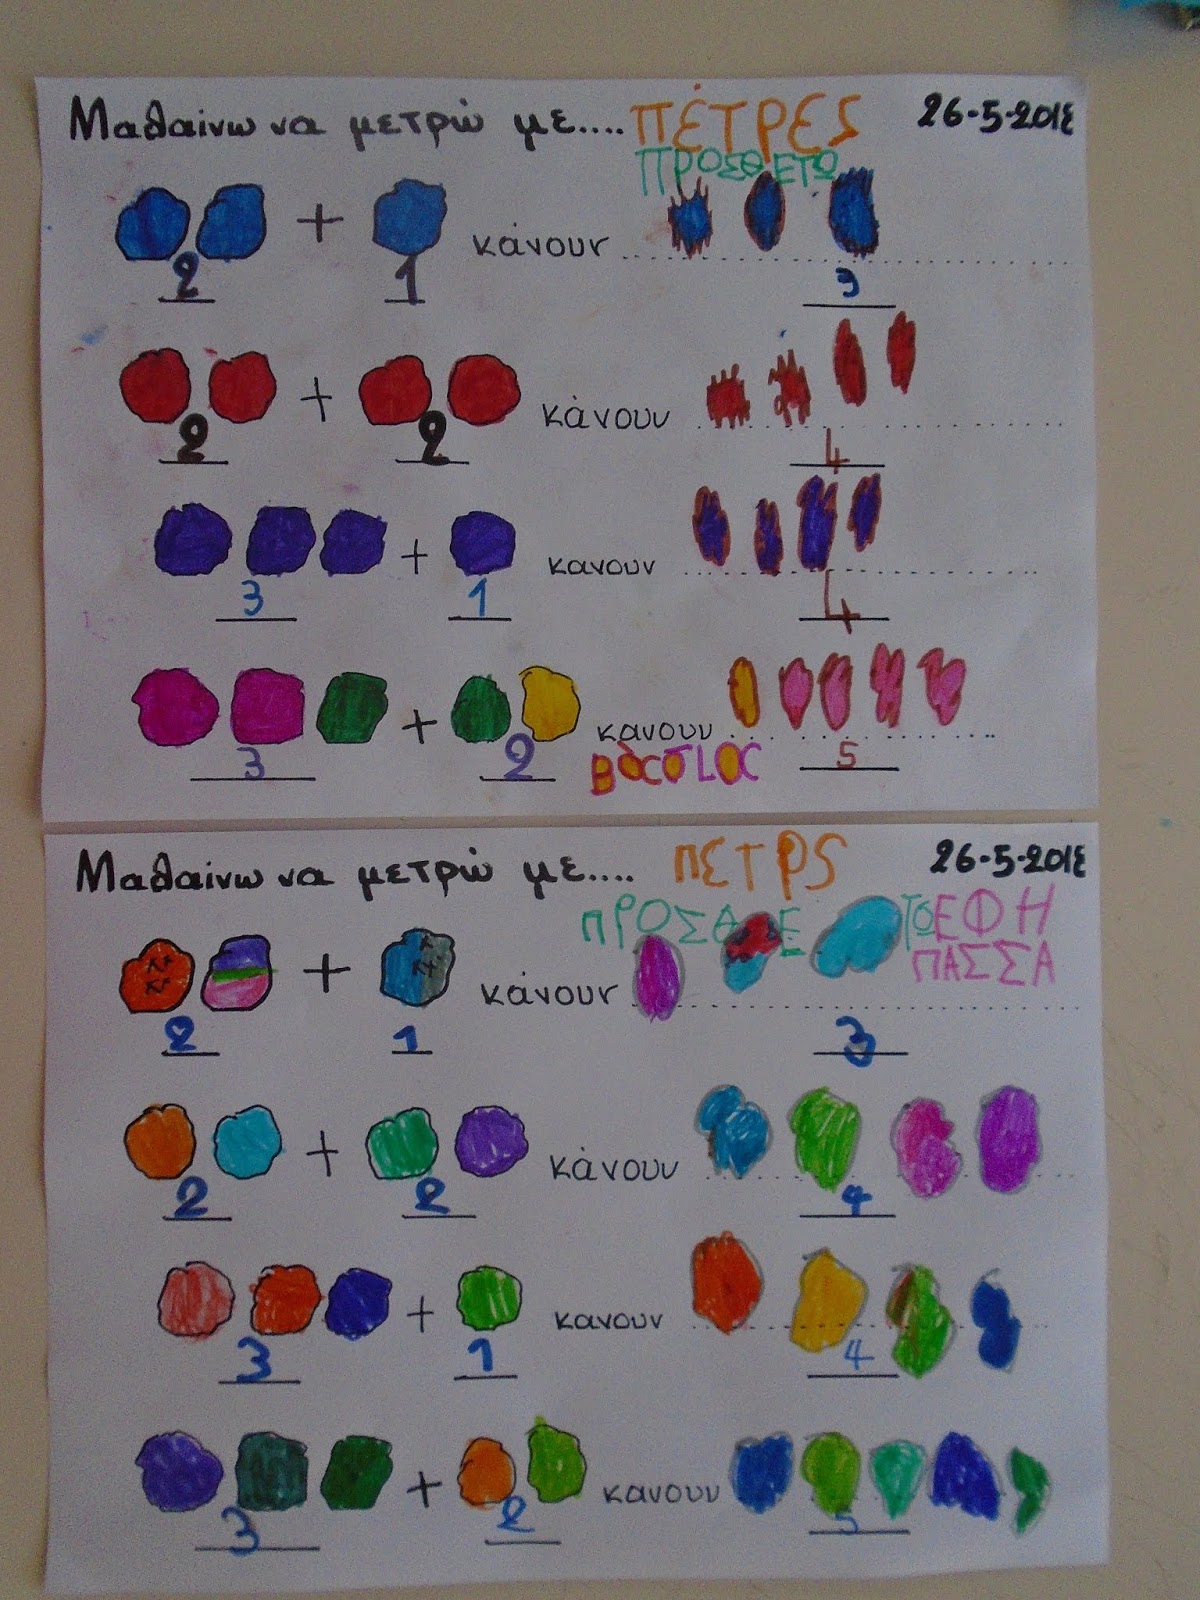 Μαθαίνω να μετρώ με.... ΠΈΤΡΕΣ 26-5-201
ΠΡΟΣΘΕΤΩ
+ κάνουν
2 1 3
+ κάνουν
2 2 4
+ κανουν
3 1 4
+ κανουν
3 2 5
Μαθαίνω να μετρώ με.... ΠΕΤΡS 26-5-201
ΠΡΟΣΘΕΤΩ ΕΦΗ
ΠΑΣΣΑ
+ κάνουν
2 1 3
+ κάνουν
2 2 4
+ κανουν
3 1 4
+ κανουν
3 2 5